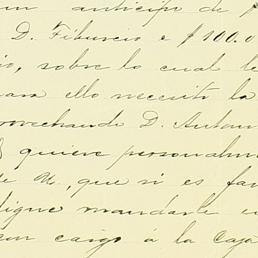 un anticipo de $
D. Tiburcio e $100.0
io, sobre lo cual le
para ello necesito la
provechando D. Anton
quiere personalme
de U., que si es fav
digne mandarle e
con cargo á la Caja